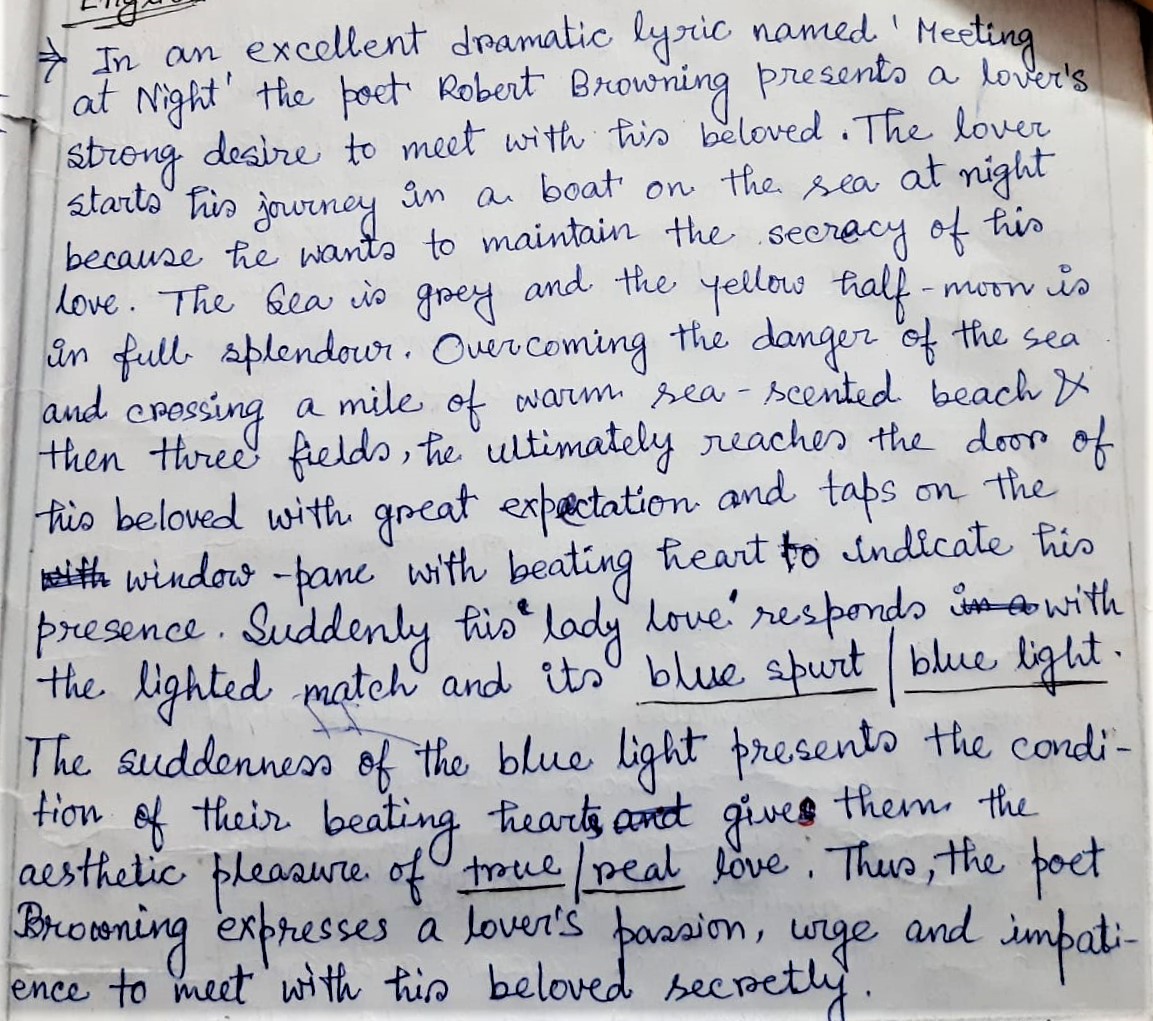 → In an excellent dramatic lyric named 'Meeting
at Night' the poet Robert Browning presents a lover's
strong desire to meet with his beloved. The lover
starts his journey in a boat on the sea at night
because he wants to maintain the secracy of his
love. The Sea is grey and the yellow half-moon is
in full splendour. Overcoming the danger of the sea
and crossing a mile of warm sea-scented beach &
then three fields, he ultimately reaches the door of
his beloved with great expectation and taps on the
with window-pane with beating heart to indicate his
presence. Suddenly his 'lady love' responds in a with
the lighted match and its blue spurt / blue light.
The suddenness of the blue light presents the condi-
tion of their beating hearts and gives them the
aesthetic pleasure of true / real love. Thus, the poet
Browning expresses a lover's passion, urge and impati-
ence to meet with his beloved secretly.